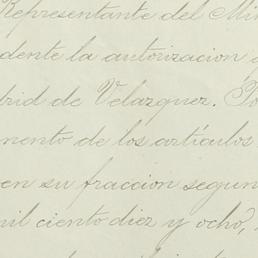 Representante del Min
dente la autorizacion
drid de Velazquez. Po
mento de los artículos
en su fraccion segun
mil ciento diez y ocho,